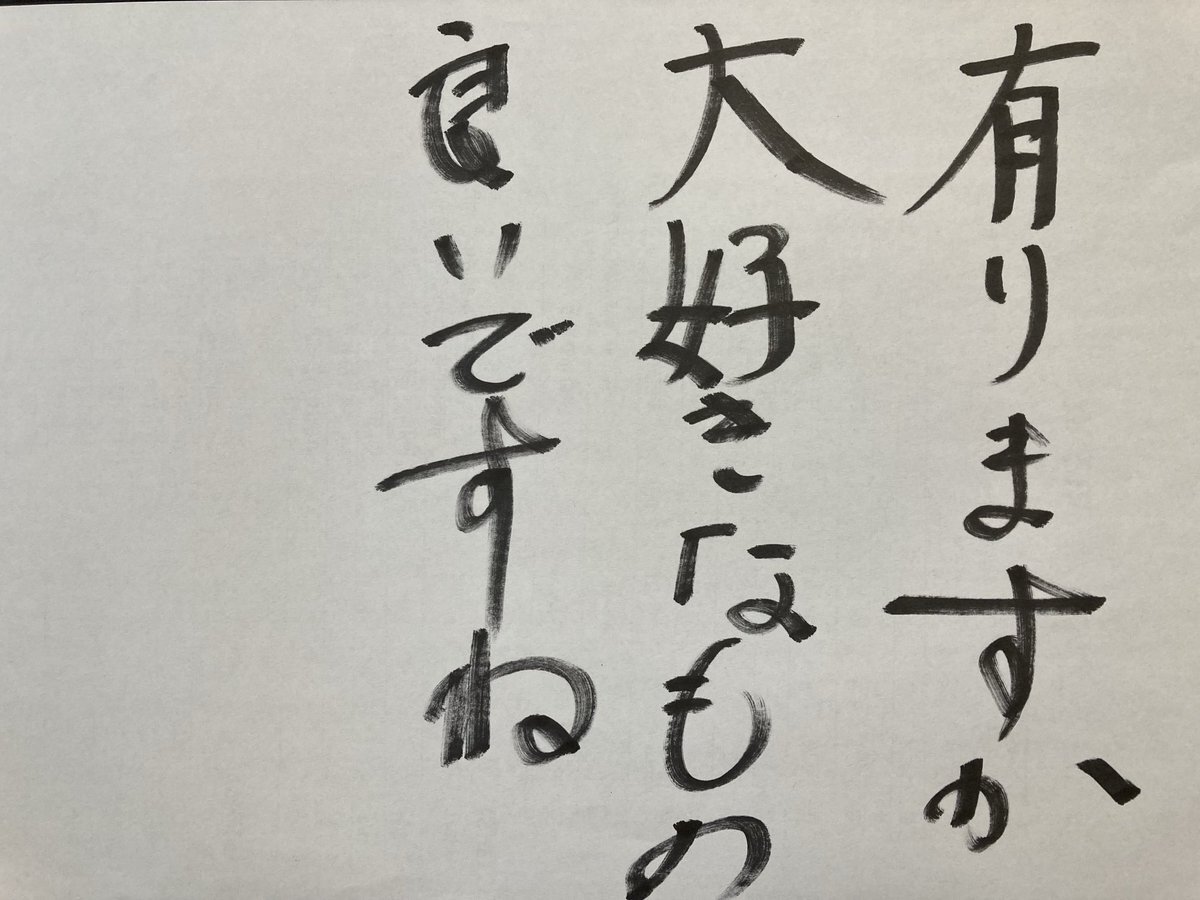 有りますか
大好きなもの
良いですね